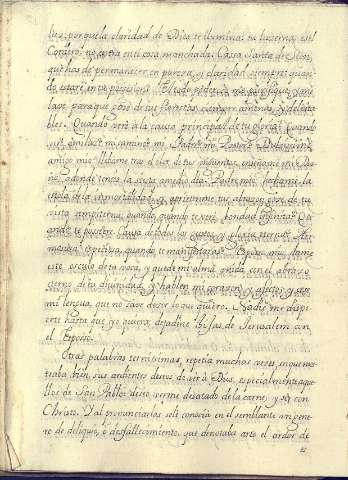 luz, porque la claridad de Dios te ilumina: tu luzerna es el
Cordero: no entra en ti cosa manchada. Cassa Santa de Sion,
que has de permanecer en pureza, y claridad siempre: quan-
do estaré en tu possession? El todo poderoso me purifique, y me
lave, para que gose de tus florestas siempre amenas, y deleita-
bles. Quando veré a la causa principal de tu gloria? Quando
sin amigo mio llebame tras el olor de tus unguentos, enseñame mi Due-
ño, adonde tenes la siesta a medio dia.
estola de la inmortalidad, y
vista sempiterna; quando, quando te veré, bondad infinita? Qu-
ando te possehere Causa de todos los gustos, y gloria eterna? Her-
mosura expectiva, quando te manifestaras? Esposo mio, dame
este osculo de tu boca, y quede mi alma unida con el abrazo
eterno de tu divinidad, y hablen mi corazon, y afectos, y cesse
mi lengua, que no save desir lo que quiero. Nadie me dispi-
erte hasta que yo quiera; dejadme hijas de Jerusalem con
el Esposso.
Otras palabras ternissimas, repetia muchas veses, en que mos-
traba bien, sus ardientes deseos de ver à Dios, especialmente aque-
llos de San Pablo: deseo verme desatado de la carne, y ser con
Christo. Y al pronunciarlos se le conosia en el semblante un gene-
ro de deliquio, ò desfallecimiento, que denotaba arto el ardor de